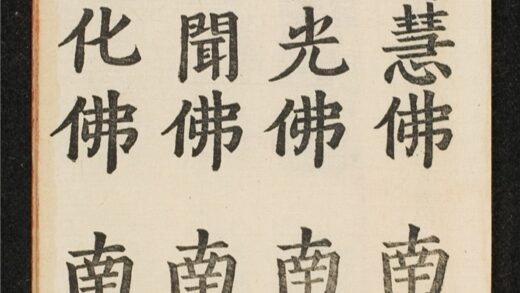 慧佛南
光佛南
聞佛南
化佛南